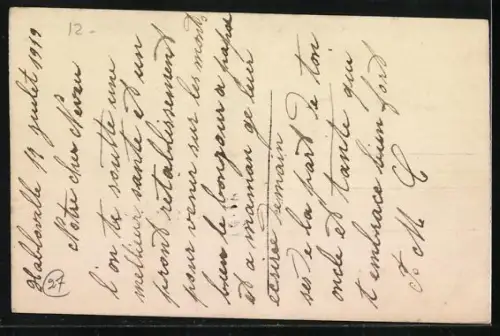 Hablovalle 13 juilet 1919
Notre cher Neveu
l'on te soutte une
meilheur santé et un
pront retablissement
pour venir sur les monts
bien le bonjour a papa
et a maman ge leur
ecrirée demain
ses de la part de ton
oncle et tante qui
t embrace bien ford
J. M C
12-
27